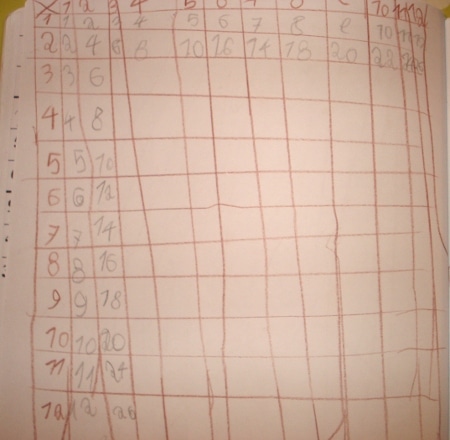 X 1 2 3 4 5 6 7 8 e 10 11 12
1 1 2 3 4 5 6 7 8 e 10 11 12
2 2 4 6 8 10 16 14 18 20 22
3 3 6
4 4 8
5 5 10
6 6 12
7 7 14
8 8 16
9 9 18
10 10 20
11 11 24
12 12 26